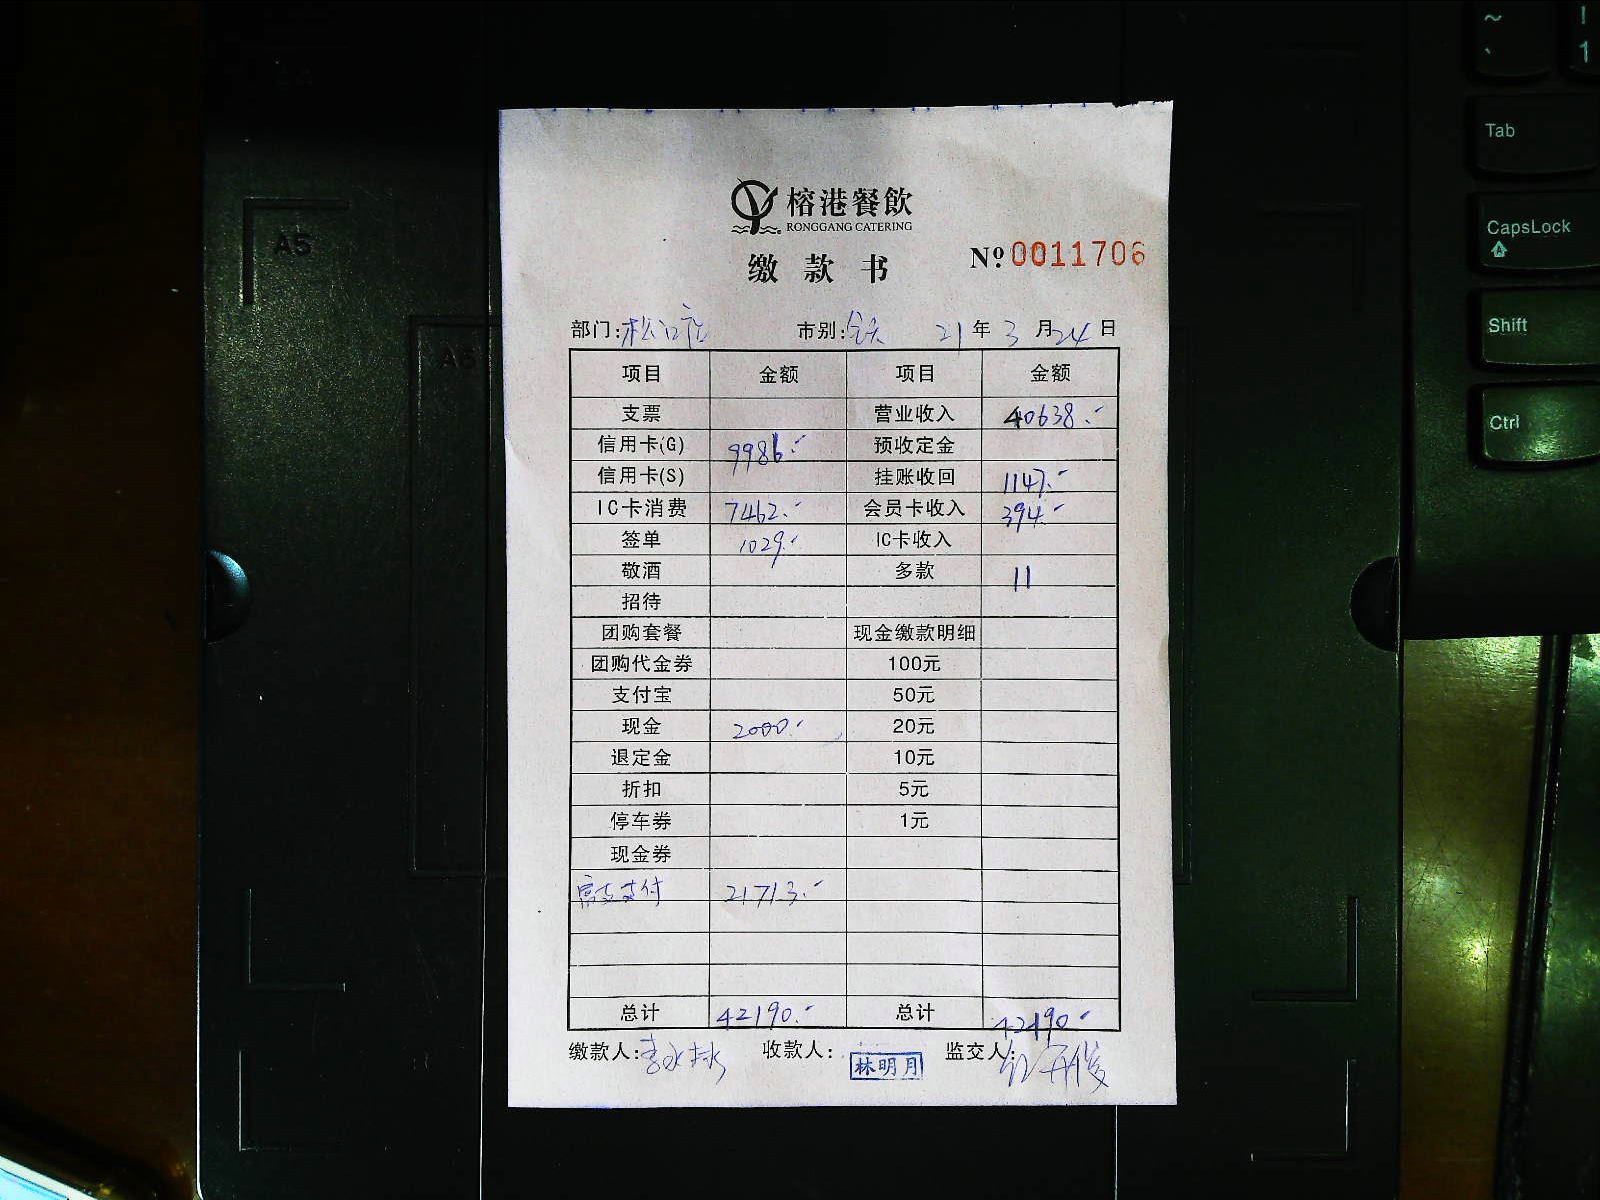 榕港餐飲
RONGGANG CATERING
缴款书 Nº0011706
部门:松江店 市别:全天 21年3月24日
项目 金额 项目 金额
支票 营业收入 40638.-
信用卡(G) 9986.- 预收定金
信用卡(S) 挂账收回 1147.-
IC卡消费 7462.- 会员卡收入 394.-
签单 1029.- IC卡收入
敬酒 多款 11
招待
团购套餐 现金缴款明细
团购代金券 100元
支付宝 50元
现金 2000.- 20元
退定金 10元
折扣 5元
停车券 1元
现金券
支付 21713.-
总计 42190.- 总计 42190.-
缴款人: 收款人:林明月 监交人:
A5
A5
~
`
!
1
Tab
CapsLock
Shift
Ctrl